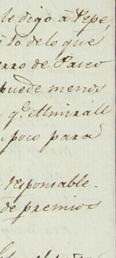 le digo á Pepe,
to de lo que
rro de Pasco
puede menos
q.e Almirall
poco para
responsable
de premios